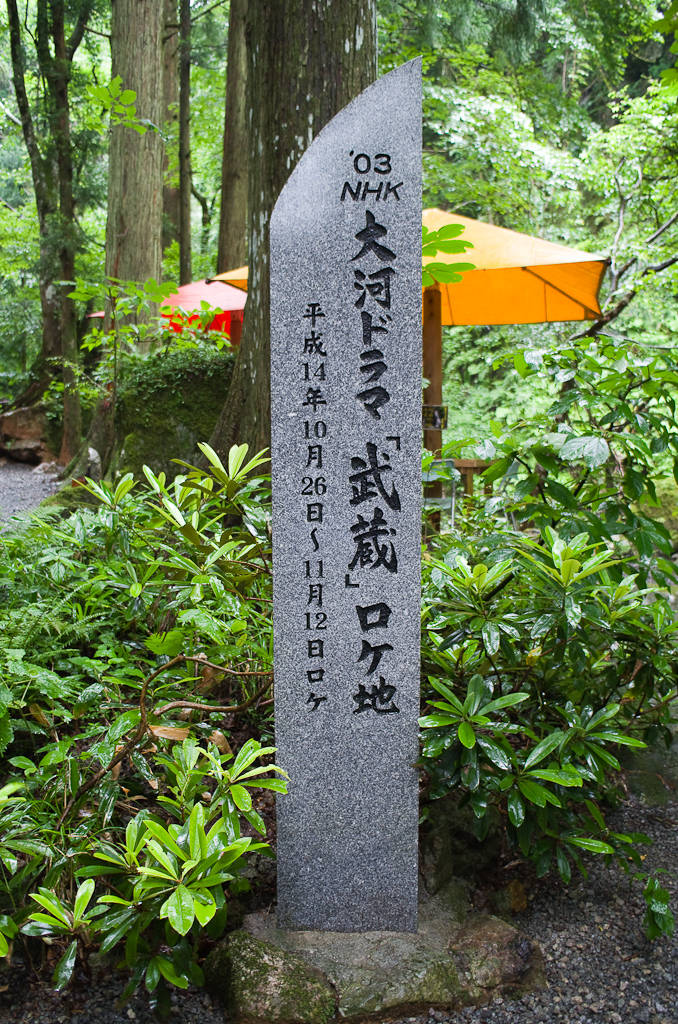 '03
NHK
大河ドラマ「武蔵」ロケ地
平成14年10月26日～11月12日ロケ